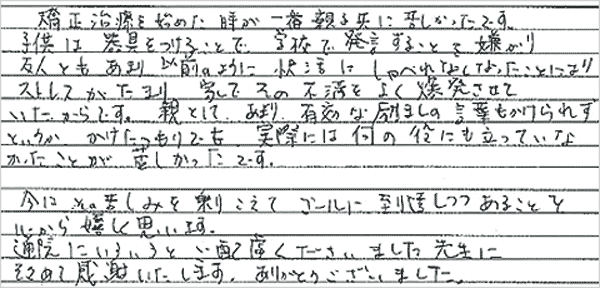 矯正治療を始めた時が一番親子共に苦しかったです。
子供は器具をつけることで、学校で発言することを嫌がり
友人ともあまり以前のように快活にしゃべれなくなったことにより
ストレスがたまり、家でその不満をよく爆発させて
いたからです。親として、あまり有効な励ましの言葉もかけられず
というか、かけたつもりでも、実際には何の役にも立っていな
かったことが苦しかったです。
今はその苦しみを乗りこえてゴールに到達しつつあることを
心から嬉しく思います。
通院にいろいろと
くださいました先生に
改めて感謝いたします。ありがとうございました。